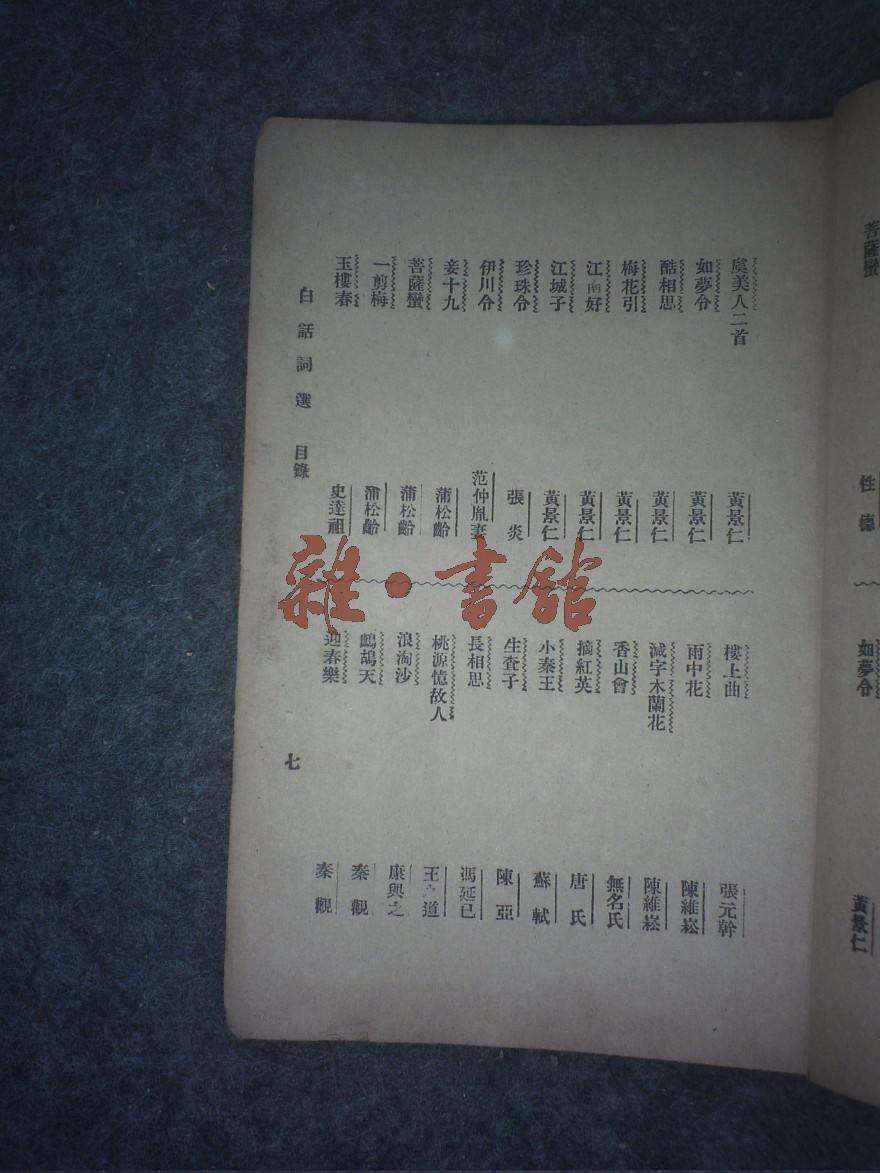 菩薩蠻
性德
如夢令
黃景仁
虞美人二首
黃景仁
如夢令
黃景仁
酷相思
黃景仁
梅花引
黃景仁
江南好
黃景仁
江城子
黃景仁
珍珠令
張炎
伊川令
范仲胤妻
妾十九
蒲松齡
菩薩蠻
蒲松齡
一剪梅
蒲松齡
玉樓春
史達祖
樓上曲
張元幹
雨中花
陳維崧
減字木蘭花
陳維崧
香山會
無名氏
摘紅英
唐氏
小秦王
蘇軾
生查子
陳亞
長相思
馮延已
桃源憶故人
王之道
浪淘沙
康與之
鷓鴣天
秦觀
迎春樂
秦觀
白話詞選 目錄
七
雜·書館